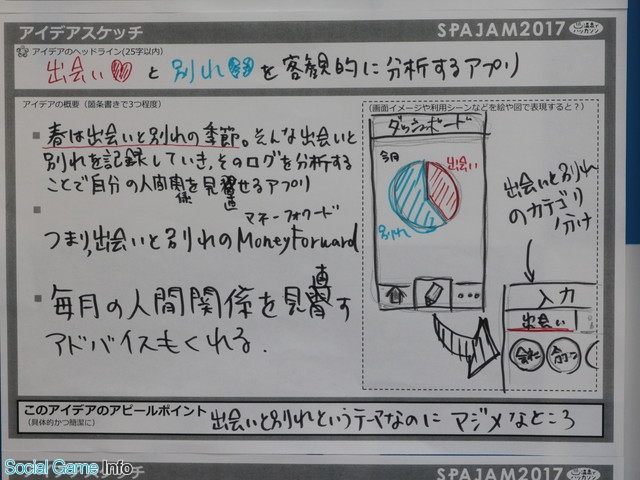 アイデアスケッチ
SPAJAM2017
温泉でハッカソン
アイデアのヘッドライン(25字以内)
出会いと別れを客観的に分析するアプリ
アイデアの概要(箇条書きで3つ程度)
春は出会いと別れの季節。そんな出会いと
別れを記録していき、そのログを分析する
ことで自分の人間関係を見直せるアプリ
マネーフォワード
つまり、出会いと別れのMoneyForward
毎月の人間関係を見直す
アドバイスもくれる.
(画面イメージや利用シーンなどを絵や図で表現すると?)
ダッシュボード
今月
出会い
別れ
出会いと別れ
のカテゴリ
分け
入力
出会い
会社
このアイデアのアピールポイント
(具体的かつ簡潔に)
出会いと別れというテーマなのに マジメなところ
Social Game Info
アイデアスケッチ
SPAJAM2017